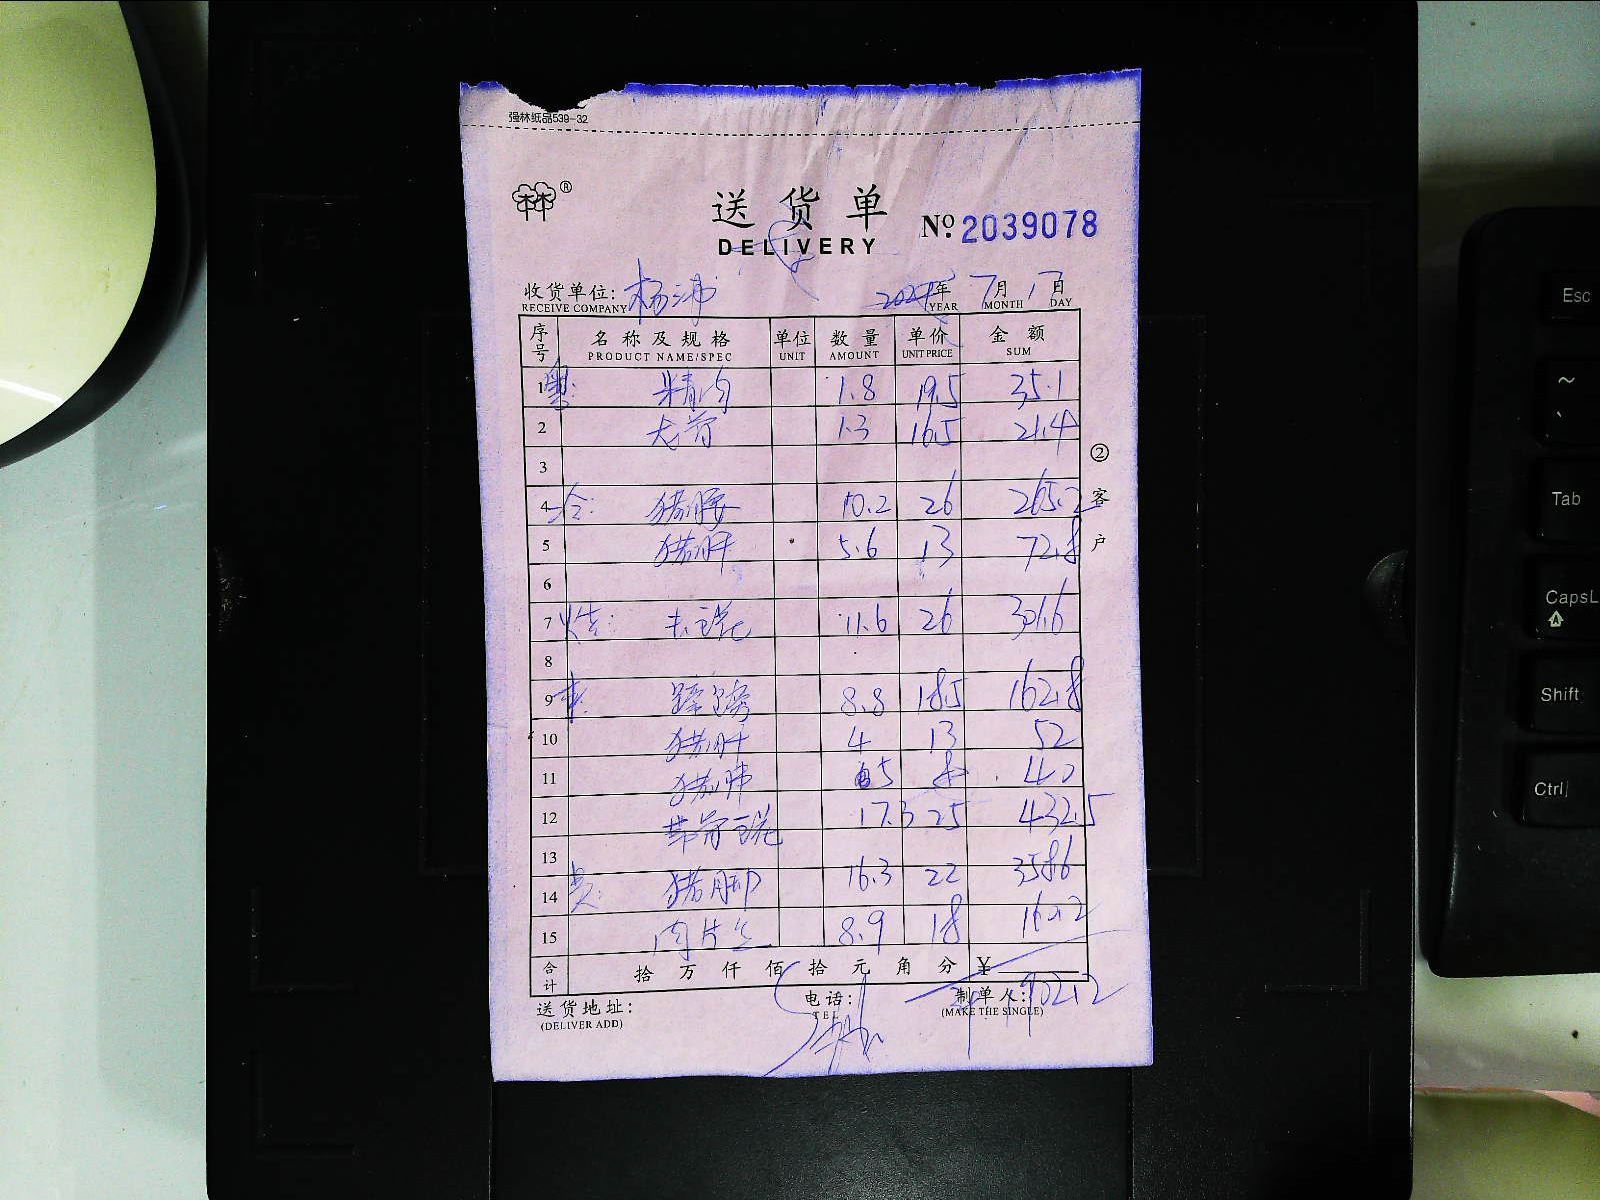 强林纸品539-32
®
送货单
DELIVERY
No. 2039078
收货单位: 杨涛 2024年7月17日
RECEIVE COMPANY YEAR MONTH DAY
序号 名称及规格 单位 数量 单价 金额
PRODUCT NAME/SPEC UNIT AMOUNT UNIT PRICE SUM
1 粤: 精肉 1.8 19.5 35.1
2 龙骨 1.3 16.5 21.4
3
4 冷: 猪腰 10.2 26 265.2
5 猪肝 5.6 13 72.8
6
7 烧: 11.6 26 301.6
8
9 8.8 18.5 162.8
10 猪肝 4 13 52
11 猪肺 5 8 40
12 17.3 25 432.5
13
14 猪脚 16.3 22 358.6
15 肉片 8.9 18 160.2
合计 拾万仟佰拾元角分 ¥
1902.2
送货地址: 电话: 制单人:
(DELIVER ADD) TEL (MAKE THE SINGLE)
②客户
Esc
~
`
Tab
CapsL
Shift
Ctrl